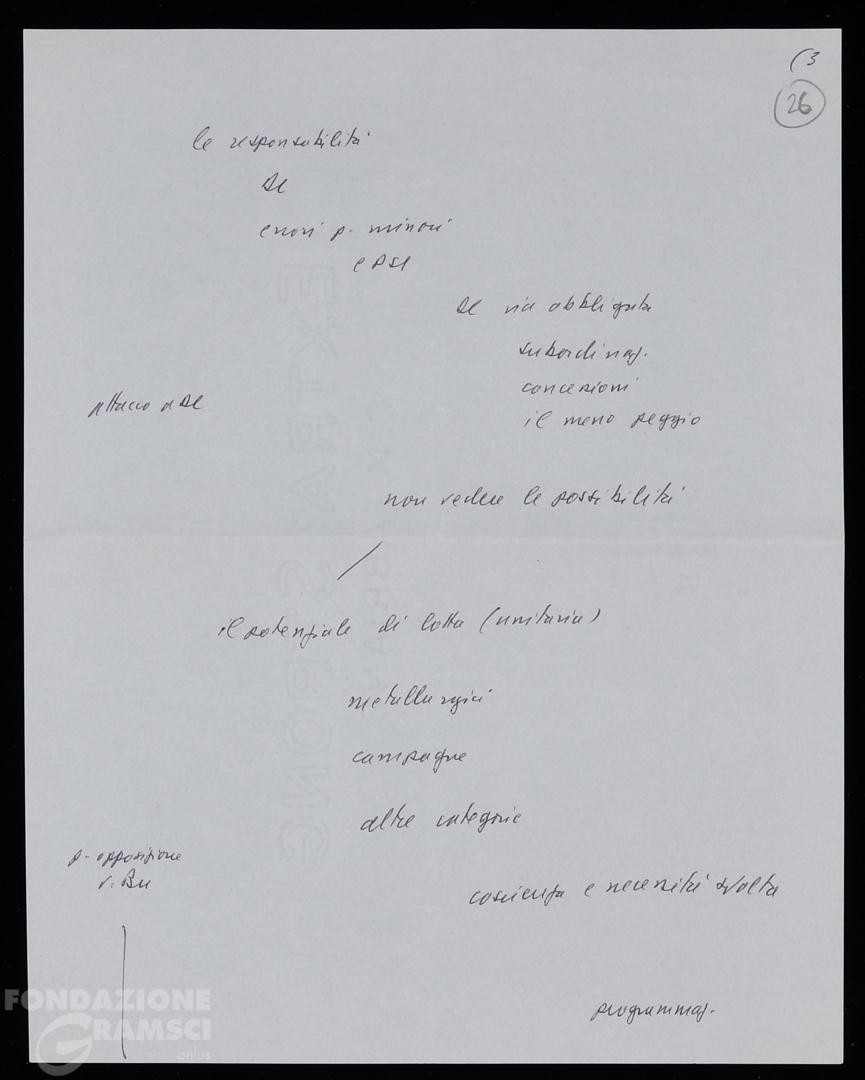 (3
26
le responsabilità
DC
errori p. minori
e PSI
DC via obbligata
subordinaz.
concezioni
attacco a DC
il meno peggio
non vedere le possibilità
il potenziale di lotta (unitaria)
metallurgici
campagne
altre categorie
p. opposizione
coscienza e necessità svolta
programmaz.
FONDAZIONE
GRAMSCI
onlus
EXTRA STRONG